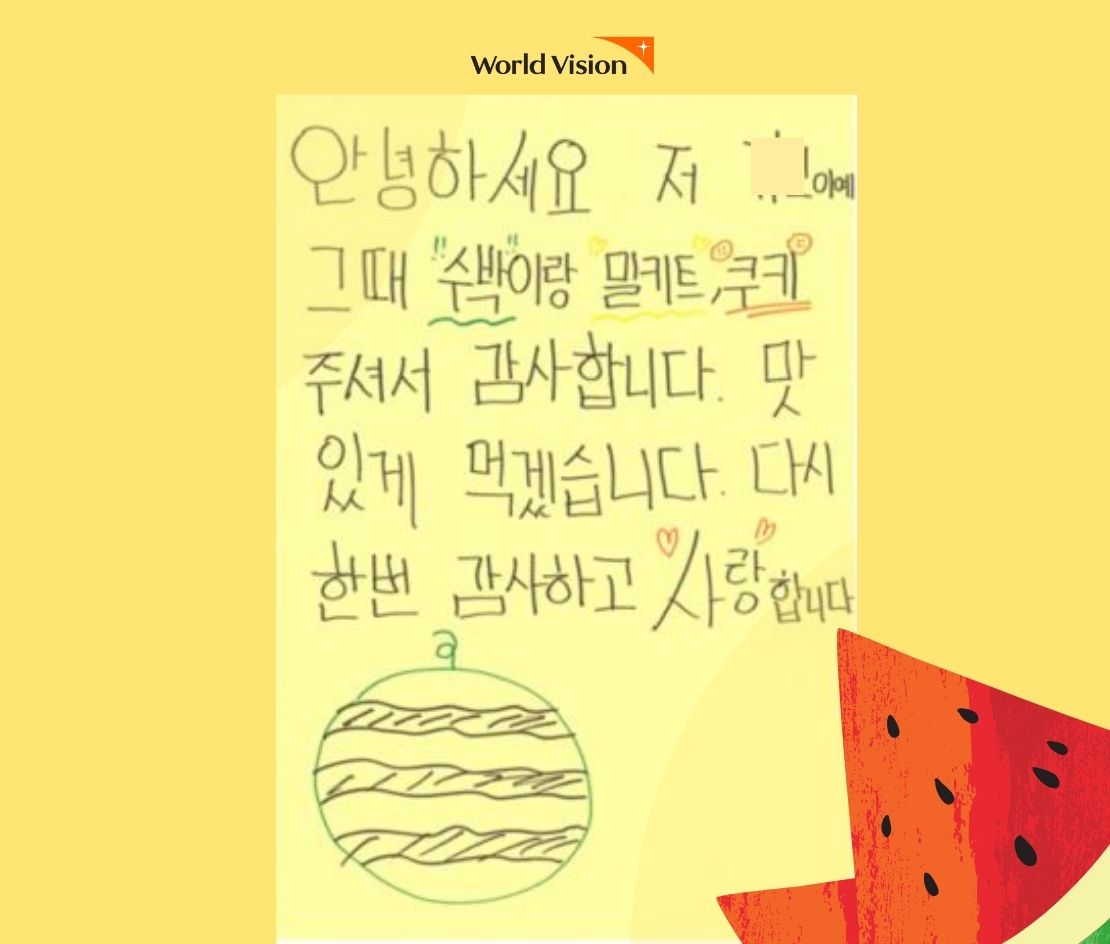 World Vision
안녕하세요 저 이예
그때 "수박"이랑 밀키트, 쿠키
주셔서 감사합니다. 맛
있게 먹겠습니다. 다시
한번 감사하고 사랑합니다